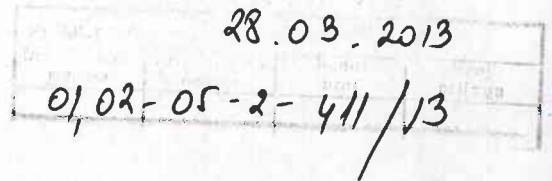 28.03.2013
01,02-05-2-411/13